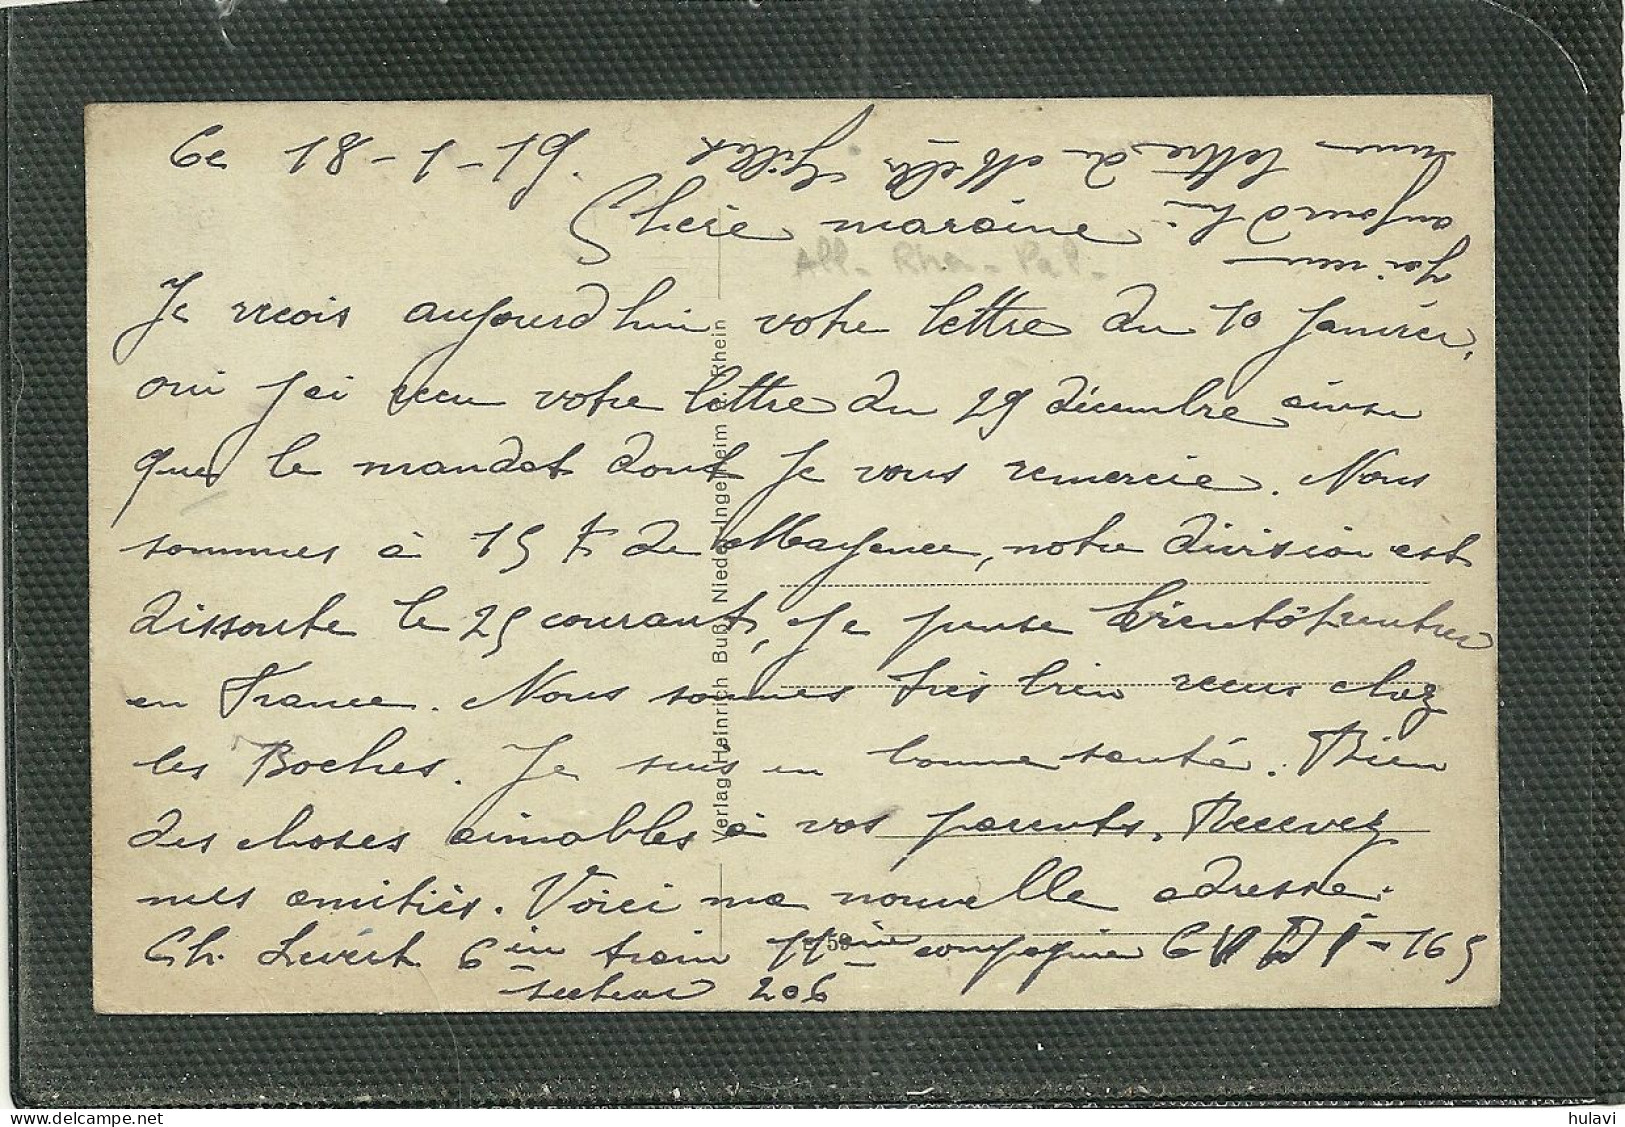 Ce 18-1-19.
Chère marraine
Je reçois aujourd'hui votre lettre du 10 Janvier,
oui j'ai reçu votre lettre du 29 décembre ainsi
que le mandat dont je vous remercie. Nous
sommes à 15 K de Mayence, notre division est
dissoute le 25 courant, je pense bientôt rentrer
en France. Nous sommes très bien reçus chez
les Boches. Je suis en bonne santé. Bien
des choses aimables à vos parents. Recevez
mes amitiés. Voici ma nouvelle adresse.
Ch. 6ème train 11ème compagnie 165
secteur 206
J'ai reçu
aujourd'hui
une lettre de Melle Gillet
All- Rhe- Pal-
Verlag Heinrich Buß, Nieder-Ingelheim a. Rhein
hulavi